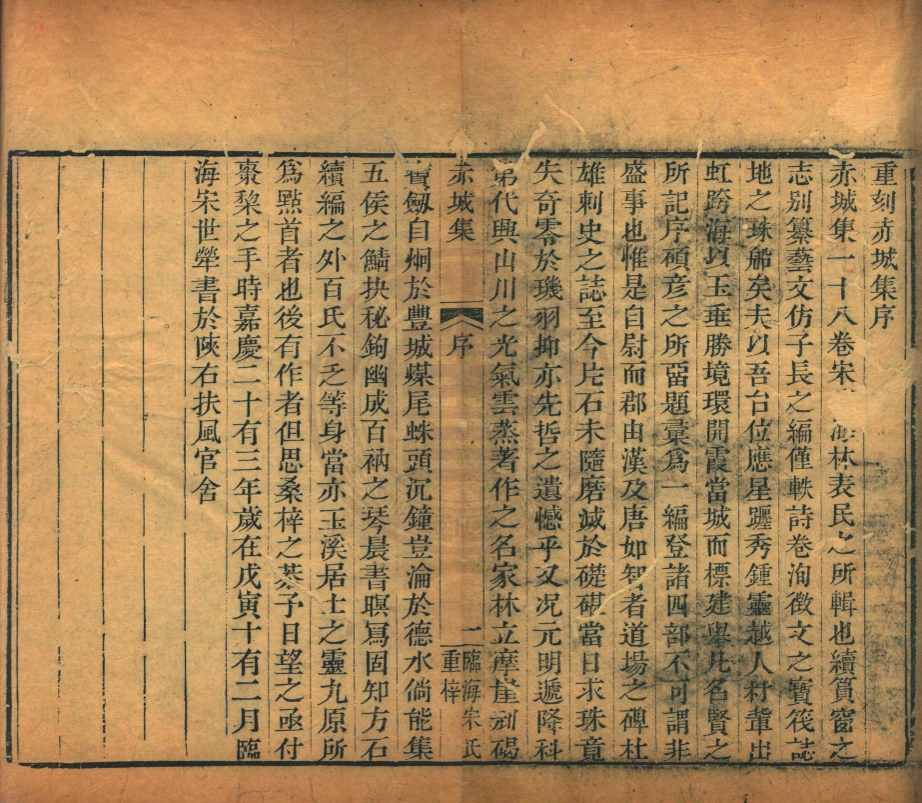 重刻赤城集序
赤城集一十八卷宋海林表民之所輯也續篔窗之
志別纂藝文仿子長之編僅軼詩卷洵徵文之寶筏誌
地之珠船矣夫以吾台位應星躔秀鍾靈越人材輩出
虹跨海以玉垂勝境環開霞當城而標建舉凡名賢之
所記序碩彥之所留題彙爲一編登諸四部不可謂非
盛事也惟是自尉而郡由漢及唐如智者道場之碑杜
雄刺史之誌至今片石未隨磨滅於礎碪當日求珠竟
失奇零於璣羽抑亦先哲之遺憾乎又况元明遞降科
第代興山川之光氣雲蒸著作之名家林立摩崖剜碣
赤城集
序
一
臨海宋氏
重梓
寶劔自炯於豐城煤尾蛛頭沉鐘豈淪於德水倘能集
五侯之鯖抉秘鉤幽成百衲之琴晨書暝寫固知方石
續編之外百氏不乏等身當亦玉溪居士之靈九原所
爲㸃首者也後有作者但思桑梓之恭予日望之亟付
棗棃之手時嘉慶二十有三年歲在戊寅十有二月臨
海宋世犖書於陝右扶風官舍